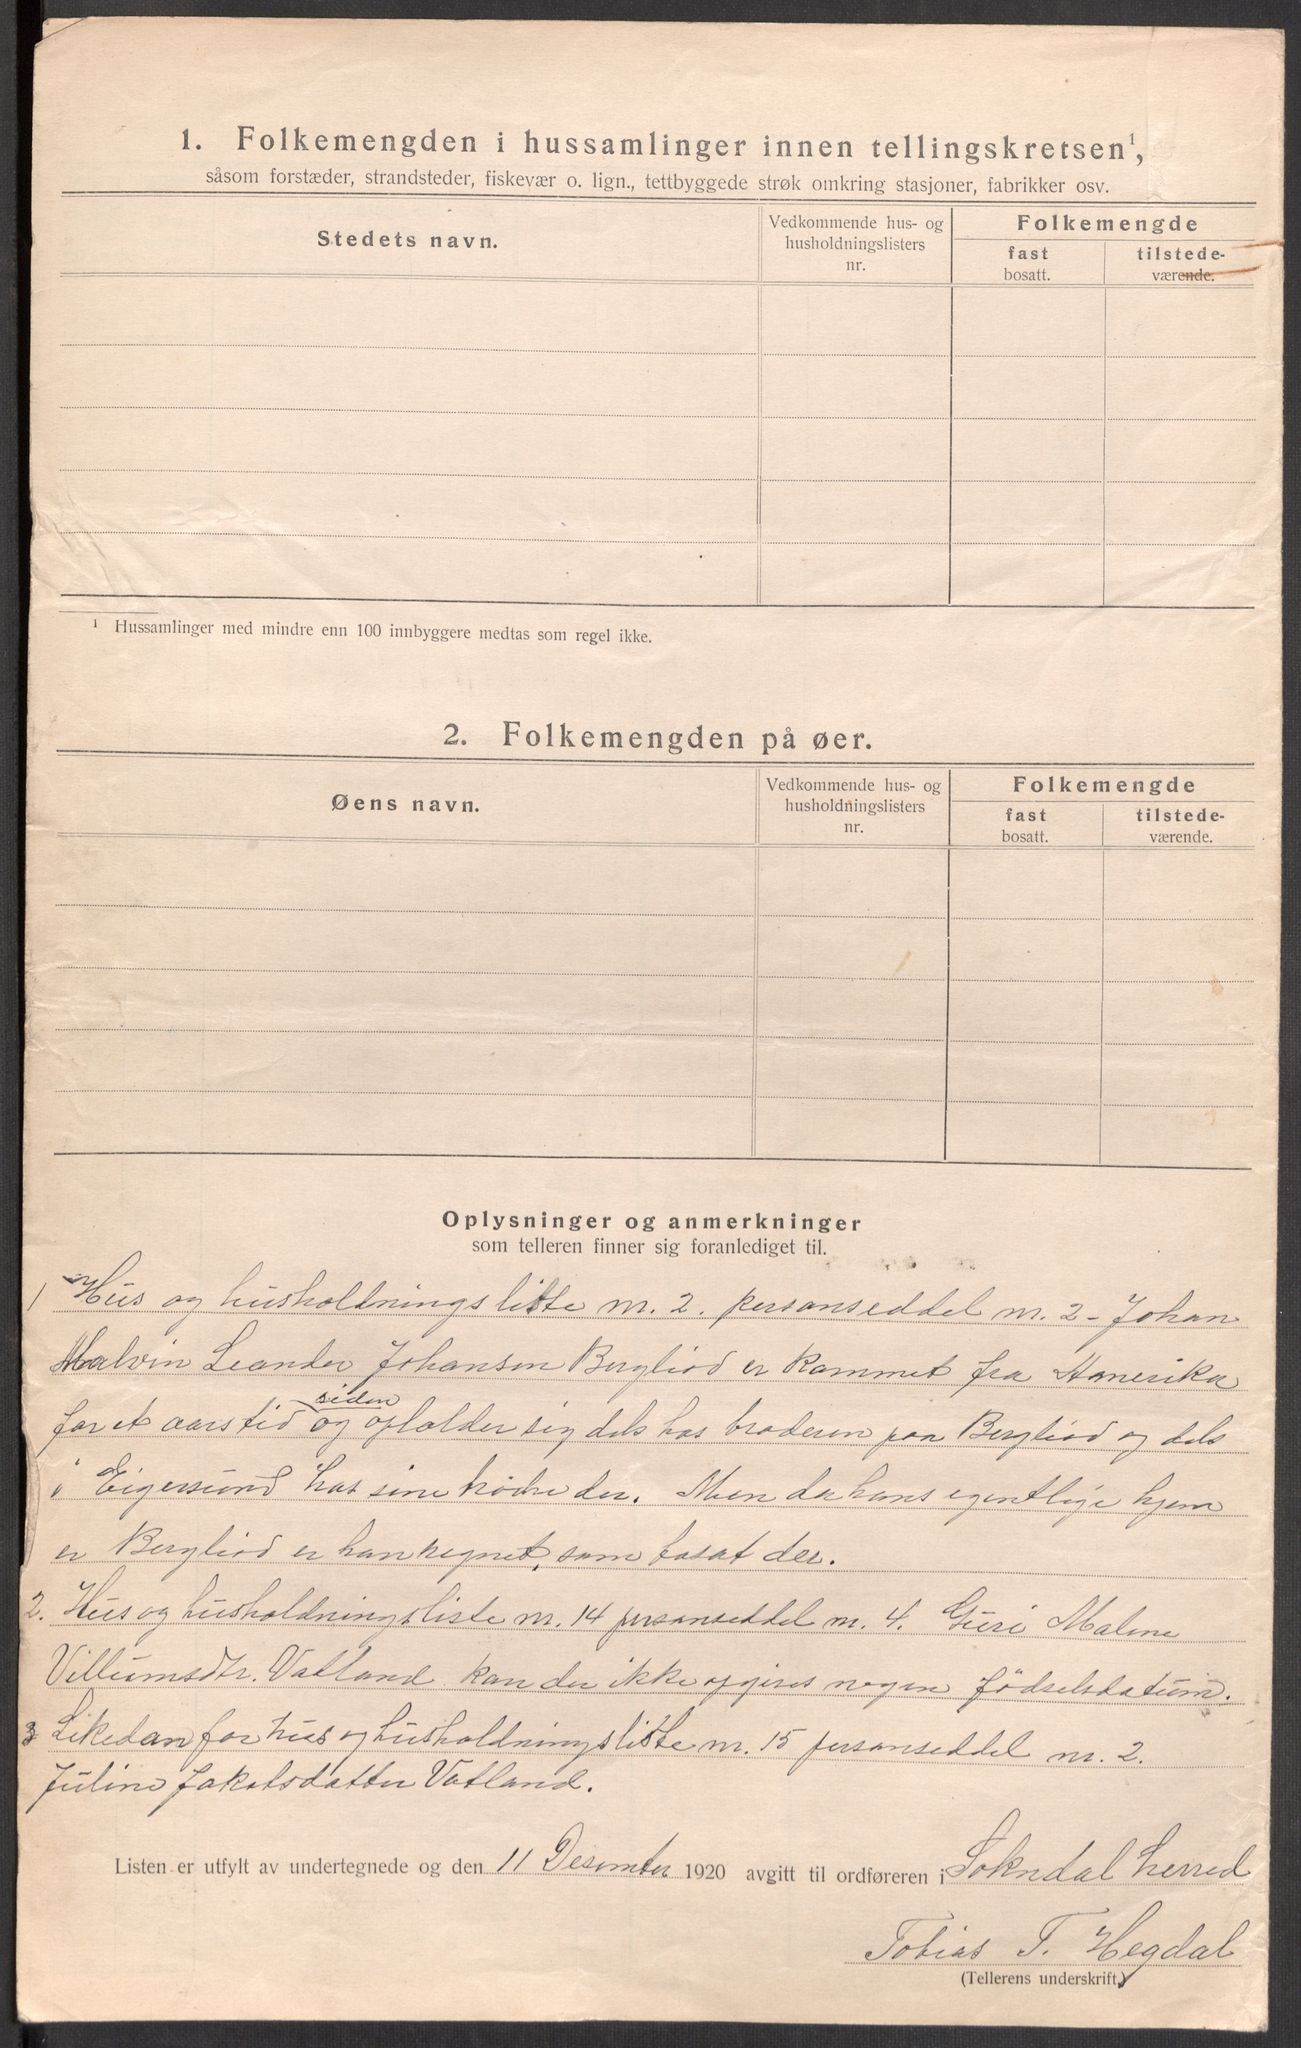 1. Folkemengden i hussamlinger innen tellingskretsen¹,
såsom forstæder, strandsteder, fiskevær o. lign., tettbyggede strøk omkring stasjoner, fabrikker osv.
Stedets navn.
Vedkommende hus- og
husholdningslisters
nr.
Folkemengde
fast
bosatt.
tilstede-
værende.
¹ Hussamlinger med mindre enn 100 innbyggere medtas som regel ikke.
2. Folkemengden på øer.
Øens navn.
Vedkommende hus- og
husholdningslisters
nr.
Folkemengde
fast
bosatt.
tilstede-
værende.
Oplysninger og anmerkninger
som telleren finner sig foranlediget til.
1 Hus og husholdningsliste nr. 2. personseddel nr. 2 - Johan
Malvin Leander Johansen Bergliod er kommet fra Amerika
for et aarstid siden og opholder sig dels hos broderen paa Bergliod og dels
i Eigersund hos sine der. Men da hans egentlige hjem
er Bergliod er han regnet som bosat der.
2. Hus og husholdningsliste nr. 14 personseddel nr. 4. Guri Malene
Villumsdtr. Vatland kan der ikke opgives nogen fødselsdatum.
3 Likedan for hus og husholdningsliste nr. 15 personseddel nr. 2.
Juline Jakobsdatter Vatland.
Listen er utfylt av undertegnede og den 11 Desember 1920 avgitt til ordføreren i Sokndal herred
Tobias T. Hegdal
(Tellerens underskrift.)